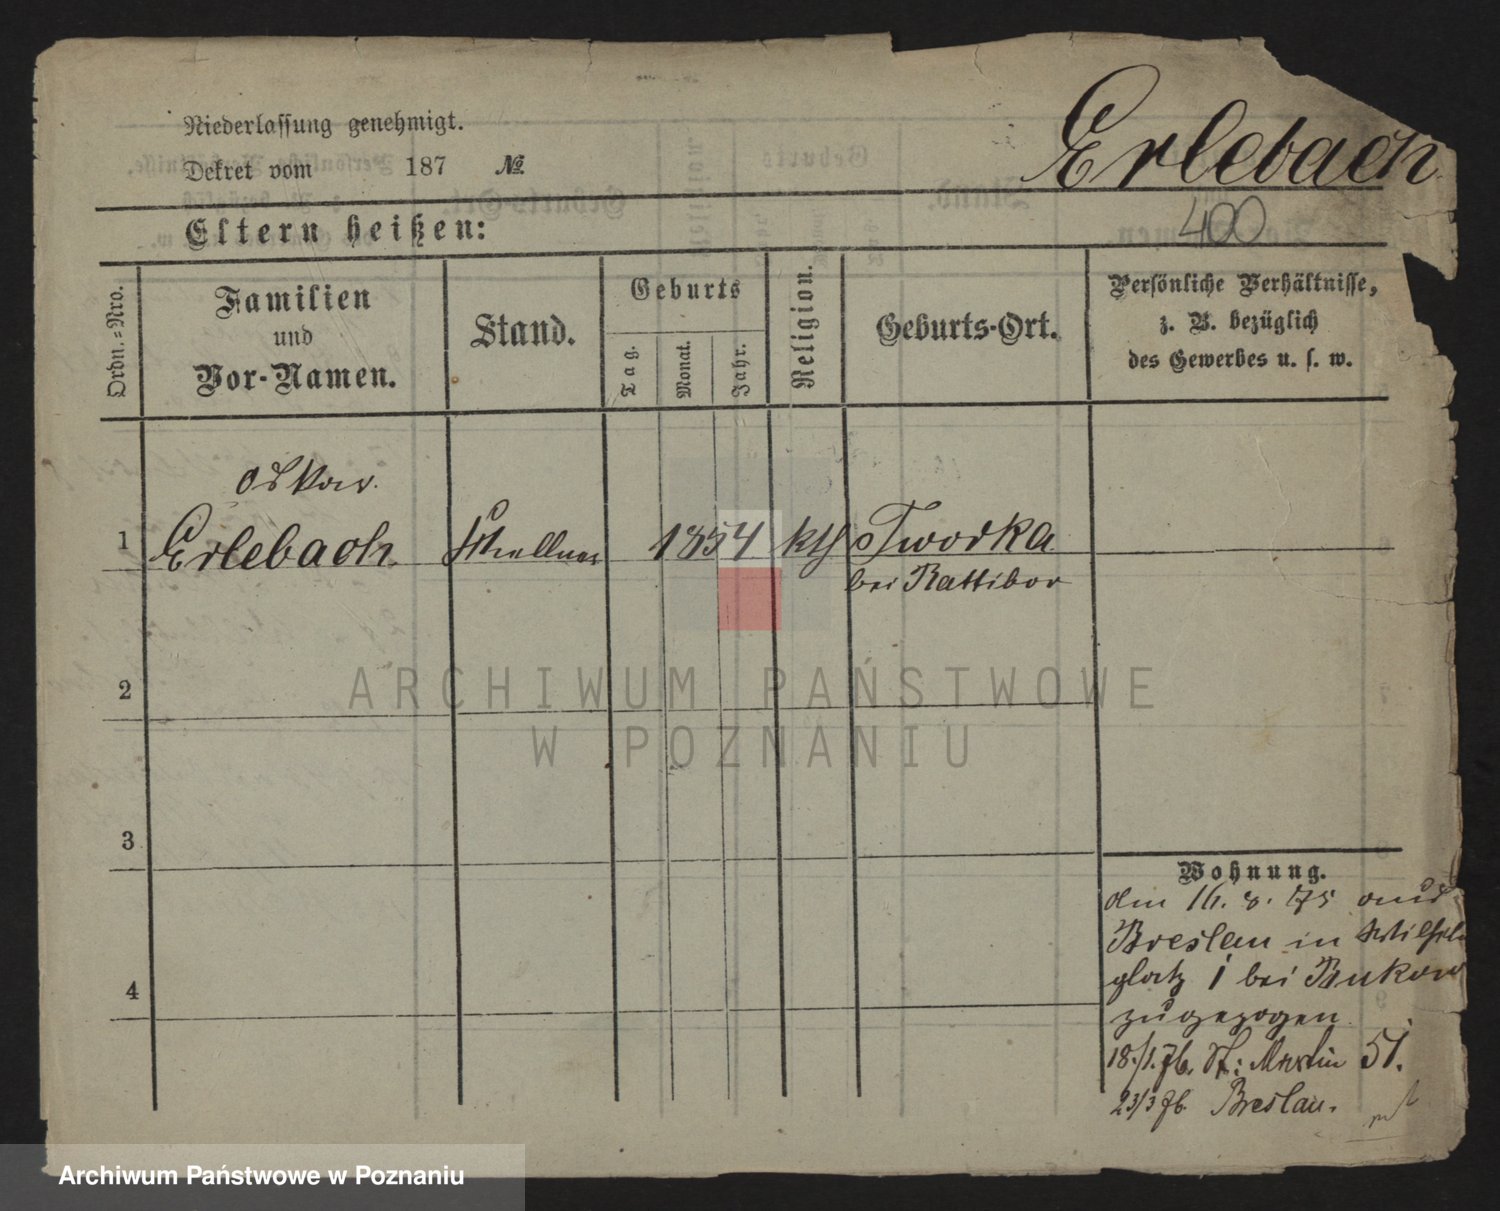 Niederlassung genehmigt.
Dekret vom 187 №
Erlebach
400
Eltern heißen:
Ordn.=Nro.
Familien
und
Vor-Namen.
Stand.
Geburts
Tag.
Monat.
Jahr.
Religion.
Geburts-Ort.
Persönliche Verhältnisse,
z. B. bezüglich
des Gewerbes u. s. w.
Oskar.
1 Erlebach 1854 kth Tworka
bei Rattibor
2
3
4
Wohnung.
den 16. 8. 75 aus
Breslau in
platz 1 bei Bukow
zugezogen
18./1.76. St: Martin 51.
23/3 76. Breslau.
ARCHIWUM PAŃSTWOWE
W POZNANIU
Archiwum Państwowe w Poznaniu